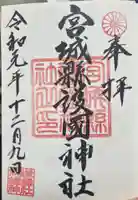 奉拝
宮城縣護國神社
令和元年十二月九日